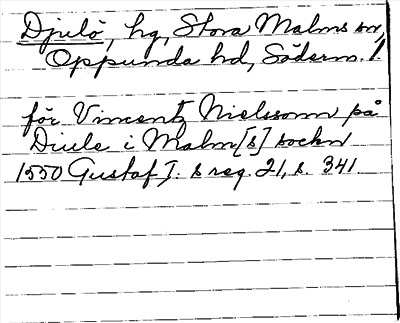 Djulö, hg, Stora Malms sn,
Oppunda hd, Söderm. l.
för Vincentz Nielssonn på
Diule i Malm[s] sockn
1550 Gustaf I. s reg. 21, s. 341.